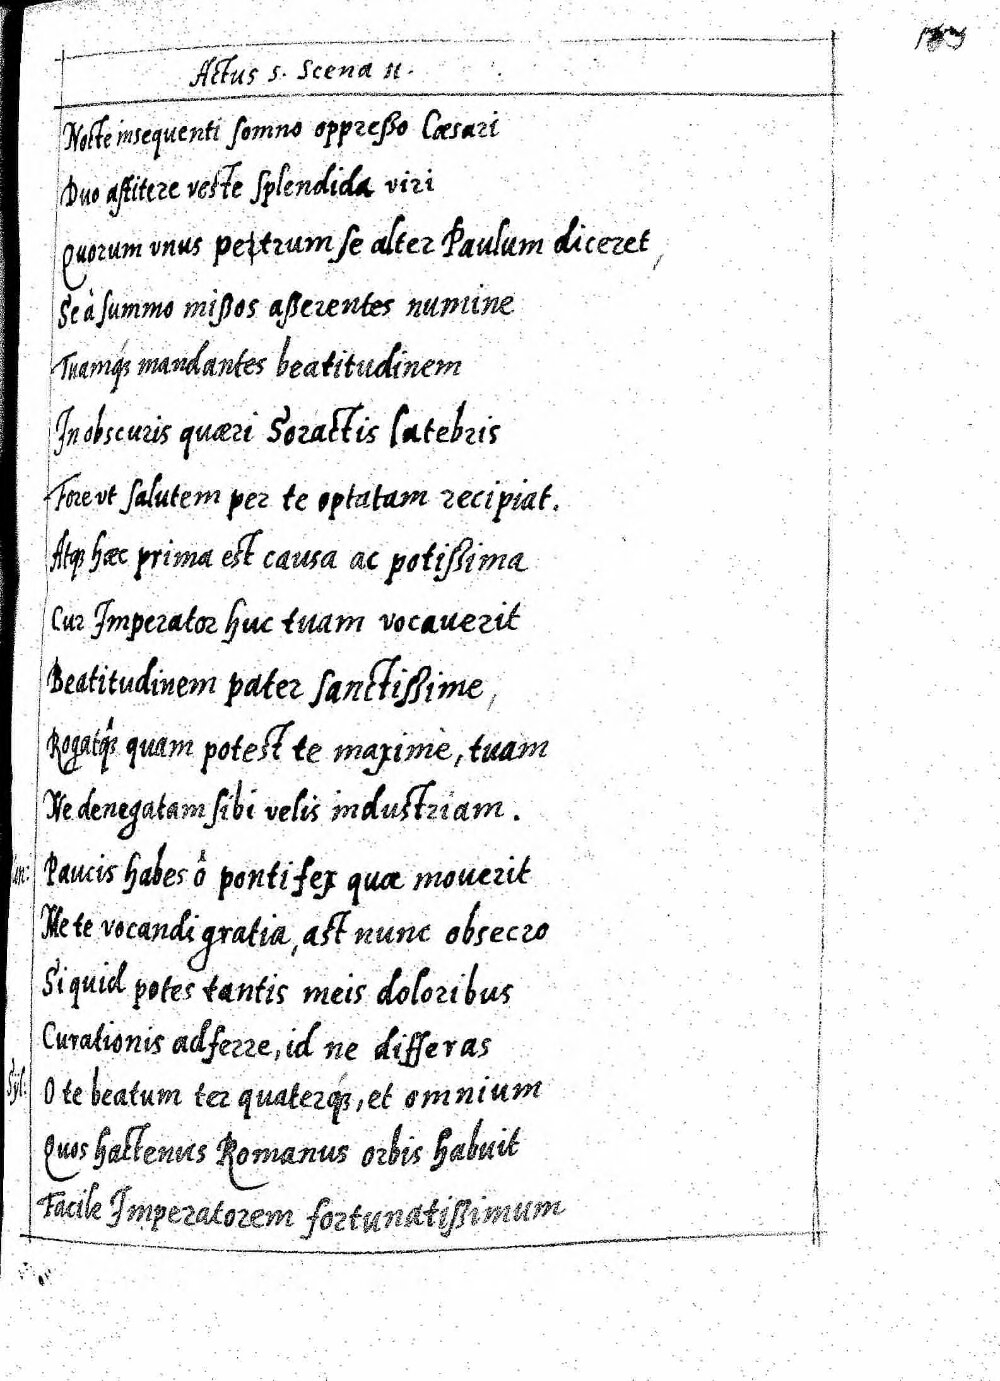 Actus 5. Scena 11.
Nocte insequenti somno oppreßo Cæsari
Duo astitere veste splendida viri
Quorum vnus petrum se alter Paulum diceret,
Se à summo mißos aßerentes numine
Tuamq́; mandantes beatitudinem
In obscuris quæri Soractis latebris
Fore vt salutem per te optatam recipiat.
Atq; hæc prima est causa ac potißima
Cur Imperator huc tuam vocauerit
Beatitudinem pater sanctißime,
Rogatq́; quam potest te maximè, tuam
Ne denegatam sibi velis industriam.
Paucis habes ô pontifex quæ mouerit
Me te vocandi gratia, ast nunc obsecro
Si quid potes tantis meis doloribus
Curationis adferre, id ne differas
Syl: O te beatum ter quaterq́;, et omnium
Quos hactenus Romanus orbis habuit
Facile Imperatorem fortunatißimum